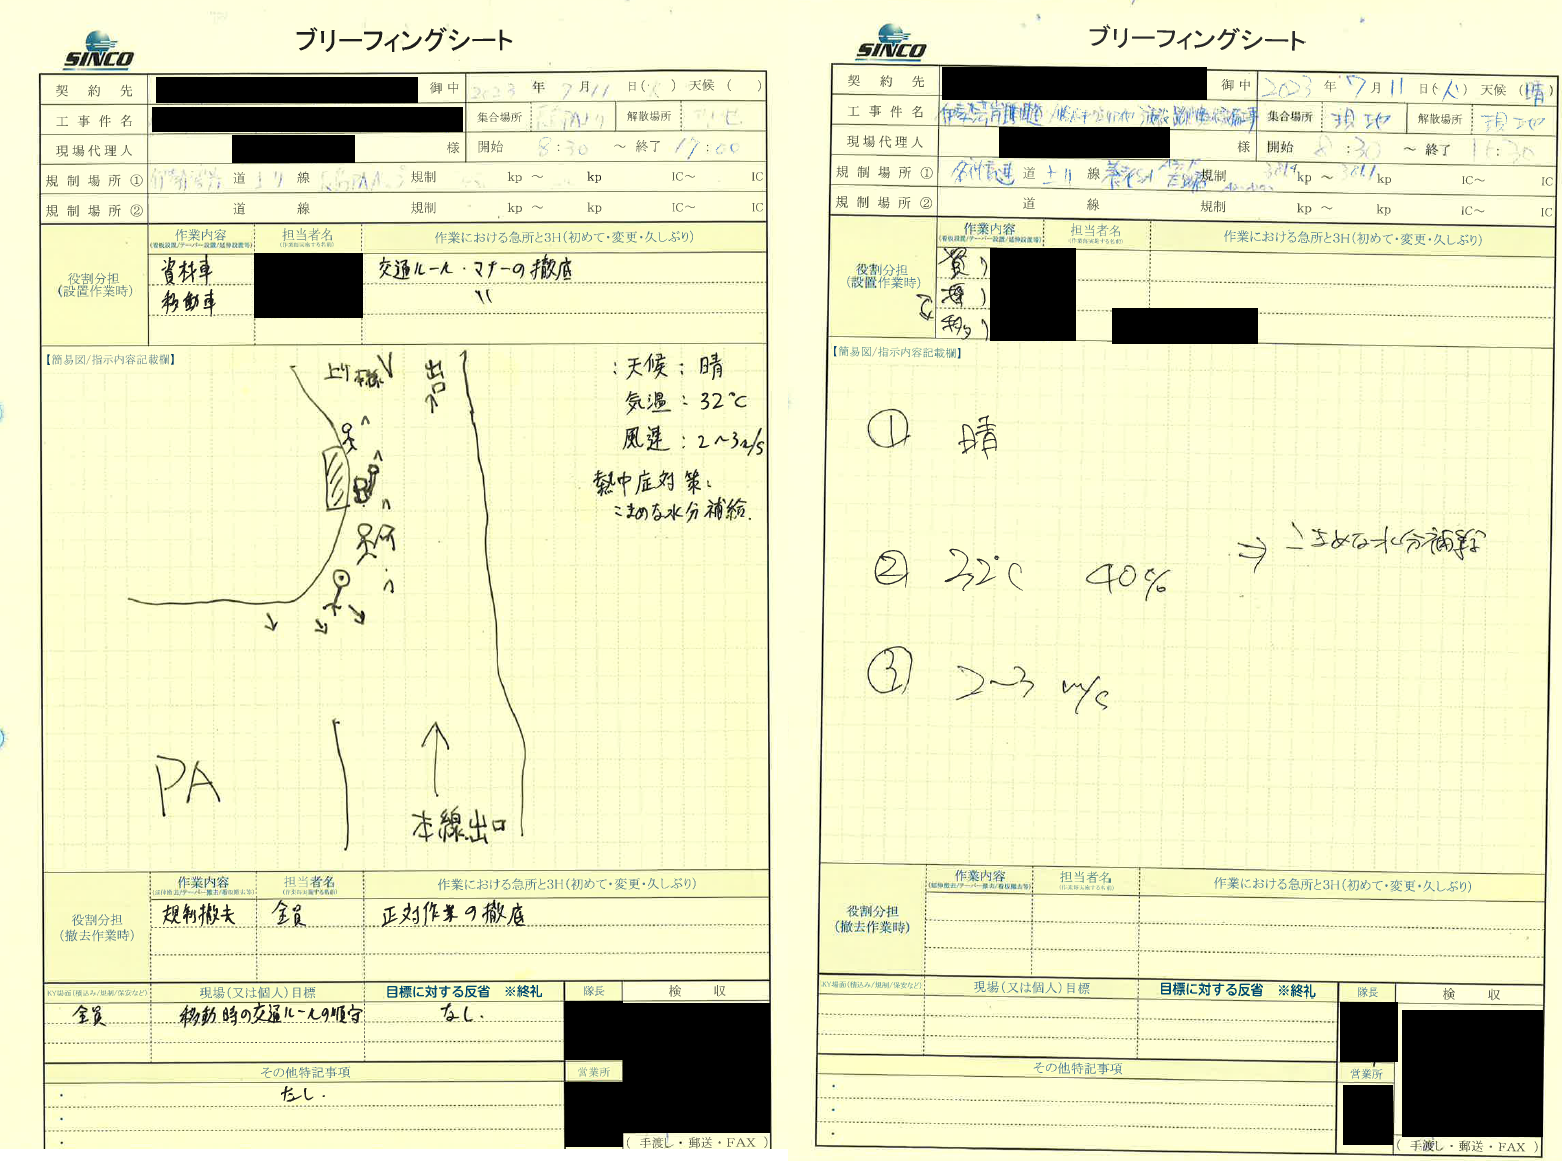 SINCO
ブリーフィングシート
契約先 御中 2023 年 7 月 11 日( ) 天候( )
工事件名 集合場所 解散場所
現場代理人 様 開始 8:30 ～ 終了 17:00
規制場所① 道 上り 線 規制 kp～ kp IC～ IC
規制場所② 道 線 規制 kp～ kp IC～ IC
役割分担
(設置作業時)
作業内容
(看板設置/テーパー設置/延伸設置等)
担当者名
(作業毎実施する名前)
作業における急所と3H(初めて・変更・久しぶり)
資材車 交通ルール・マナーの徹底
移動車 〃
【簡易図/指示内容記載欄】
上り本線
出口
:天候:晴
気温:32℃
風速:2～3m/s
熱中症対策:
こまめな水分補給.
PA
本線出口
役割分担
(撤去作業時)
作業内容
(延伸撤去/テーパー撤去/看板撤去等)
担当者名
(作業毎実施する名前)
作業における急所と3H(初めて・変更・久しぶり)
規制撤去 全員 正対作業の徹底
KY場面(積込み/規制/保安など) 現場(又は個人)目標 目標に対する反省 ※終礼 隊長 検収
全員 移動時の交通ルールの順守 なし.
その他特記事項 営業所
・ なし.
・
・
(手渡し・郵送・FAX)
SINCO
ブリーフィングシート
契約先 御中 2023 年 7 月 11 日(火) 天候(晴)
工事件名 集合場所 現地 解散場所 現地
現場代理人 様 開始 8:30 ～ 終了 16:30
規制場所① 道 上り 線 規制 kp～ kp IC～ IC
規制場所② 道 線 規制 kp～ kp IC～ IC
役割分担
(設置作業時)
作業内容
(看板設置/テーパー設置/延伸設置等)
担当者名
(作業毎実施する名前)
作業における急所と3H(初めて・変更・久しぶり)
【簡易図/指示内容記載欄】
① 晴
② 32℃ 40% ⇒ こまめな水分補給
③ 2～3 m/s
役割分担
(撤去作業時)
作業内容
(延伸撤去/テーパー撤去/看板撤去等)
担当者名
(作業毎実施する名前)
作業における急所と3H(初めて・変更・久しぶり)
KY場面(積込み/規制/保安など) 現場(又は個人)目標 目標に対する反省 ※終礼 隊長 検収
その他特記事項 営業所
・
・
・
(手渡し・郵送・FAX)